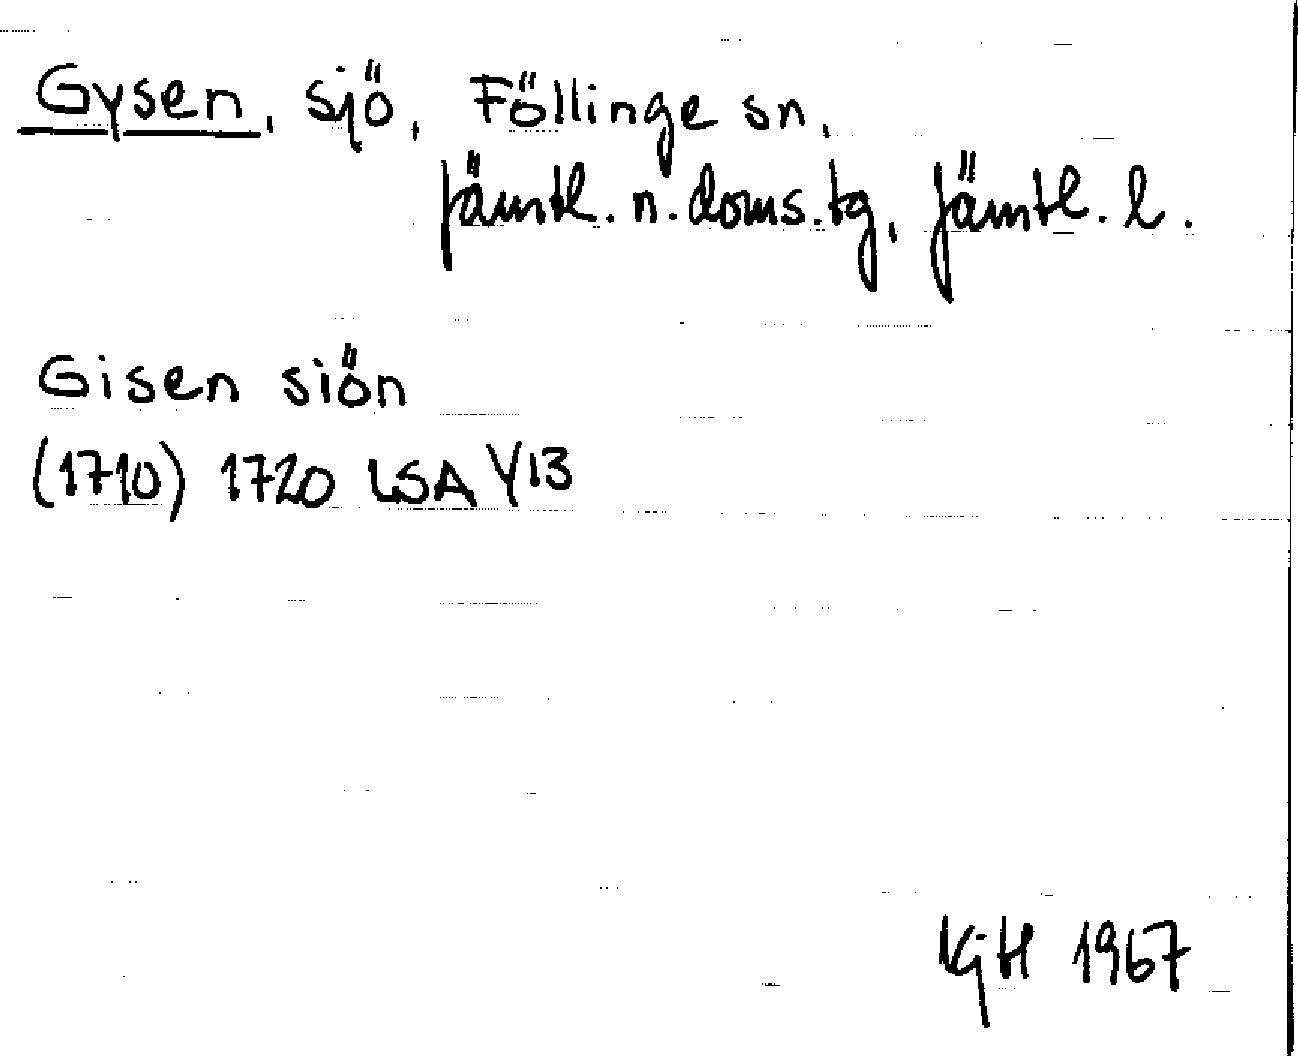 Gysen, sjö, Föllinge sn,
Jämtl. n. doms.tg, Jämtl. l.
Gisen siön
(1710) 1720 LSA Y13
KGH 1967